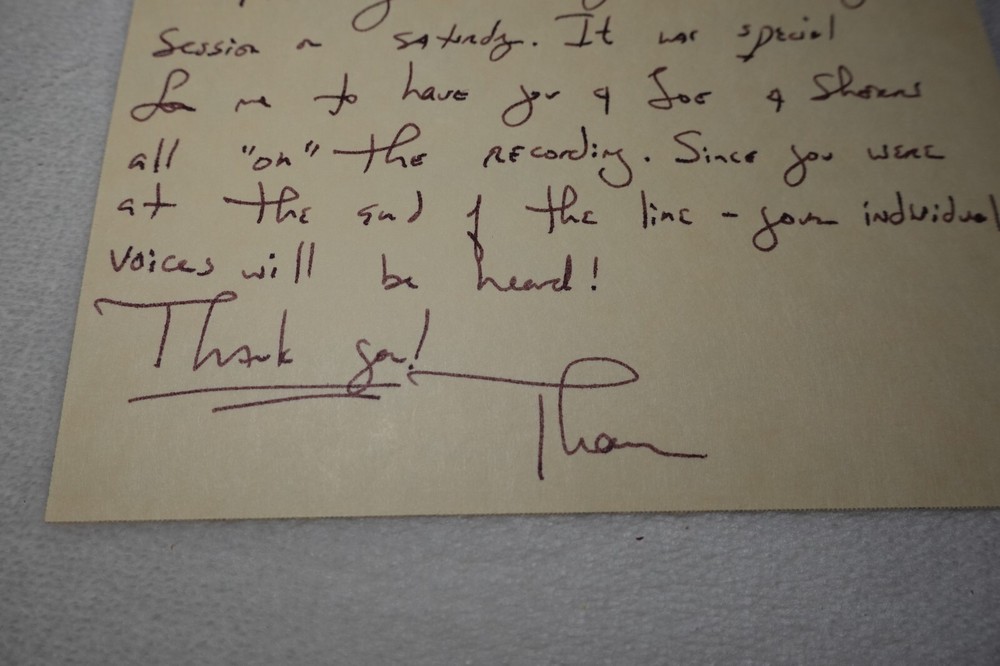 Session on Saturday. It was special
for me to have you & Joe & Shawns
all "on" the recording. Since you were
at the end of the line - your individual
voices will be heard!
Thank you!
Thom